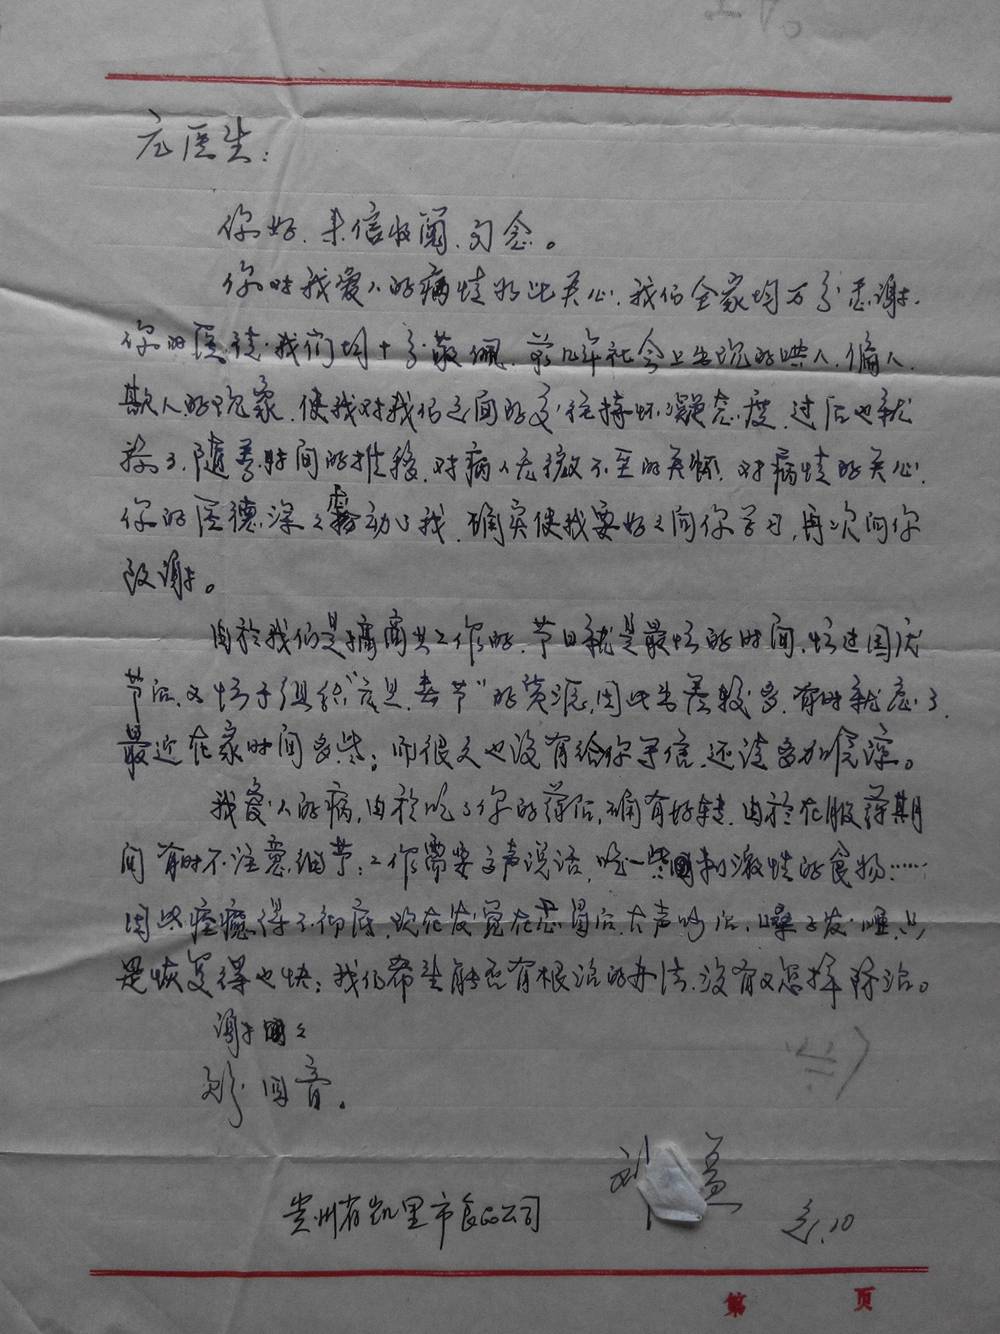 医生:
你好.来信收阅、勿念。
你对我爱人的病情如此关心.我们全家均万分感谢.
你的医德.我们均十分敬佩.前几年社会上出现的哄人.偏人.
欺人的现象.使我对我们之间的交往持怀疑态度.过后也就
随着时间的推移.对病人无微不至的关怀.对病情的关心.
你的医德.深之感动了我.确实使我要好之向你学习,再次向你
致谢。
由於我们是搞商工作的.节日就是最忙的时间.忙过国庆
节后又忙于组织“元旦.春节”的货源,因此出差较多.有时就忘了.
最近在家时间多些;而很久也没有给你写信.还请多加谅。
我爱人的病,由於吃了你的药后,确有好转.由於在服药期
间有时不注意细节;工作需要高声说话,吃一些刺激性的食物……
因此痊癒得不彻底.现在发觉在感冒后.大声吵后,嗓子发哑,只
是恢复得也快;我们希望能否有根治的办法.没有又怎样除治。
谢谢
盼回音。
刘
贵州省凯里市食品公司
10
第 页